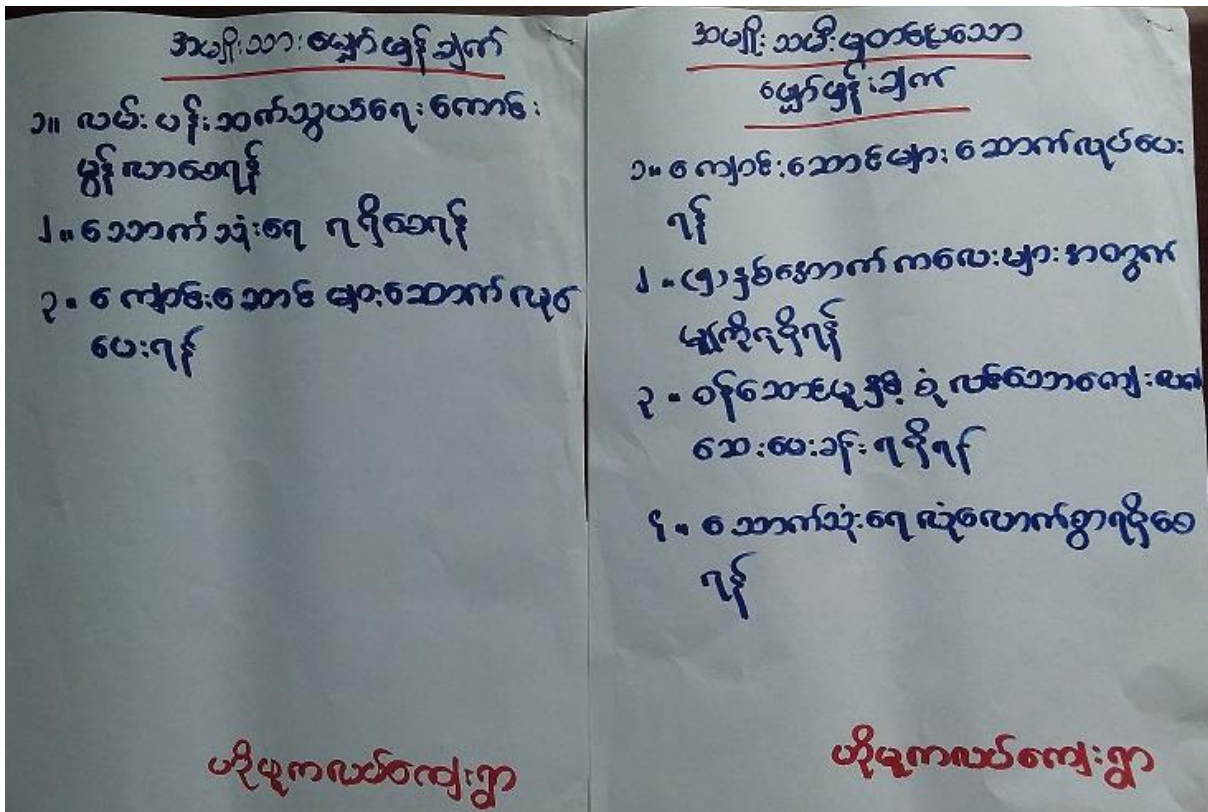 အမျိုးသားမျှော်မှန်းချက်
၁။ လမ်းပန်းဆက်သွယ်ရေးကောင်း
မွန်လာစေရန်
၂။ သောက်သုံးရေ ရရှိစေရန်
၃။ ကျောင်းဆောင်များဆောက်လုပ်
ပေးရန်
ဟိုမူကလပ်ကျေးရွာ
အမျိုးသမီးများတွေးသော
မျှော်မှန်းချက်
၁။ ကျောင်းဆောင်များ ဆောက်လုပ်ပေး
ရန်
၂။ (၅)နှစ်အောက်ကလေးများအတွက်
မူကြိုရရှိရန်
၃။ ဝန်ဆောင်မှုနှင့် စုံလင်သောကျေးလက်
ဆေးပေးခန်းရရှိရန်
၄။ သောက်သုံးရေလုံလောက်စွာရရှိစေ
ရန်
ဟိုမူကလပ်ကျေးရွာ